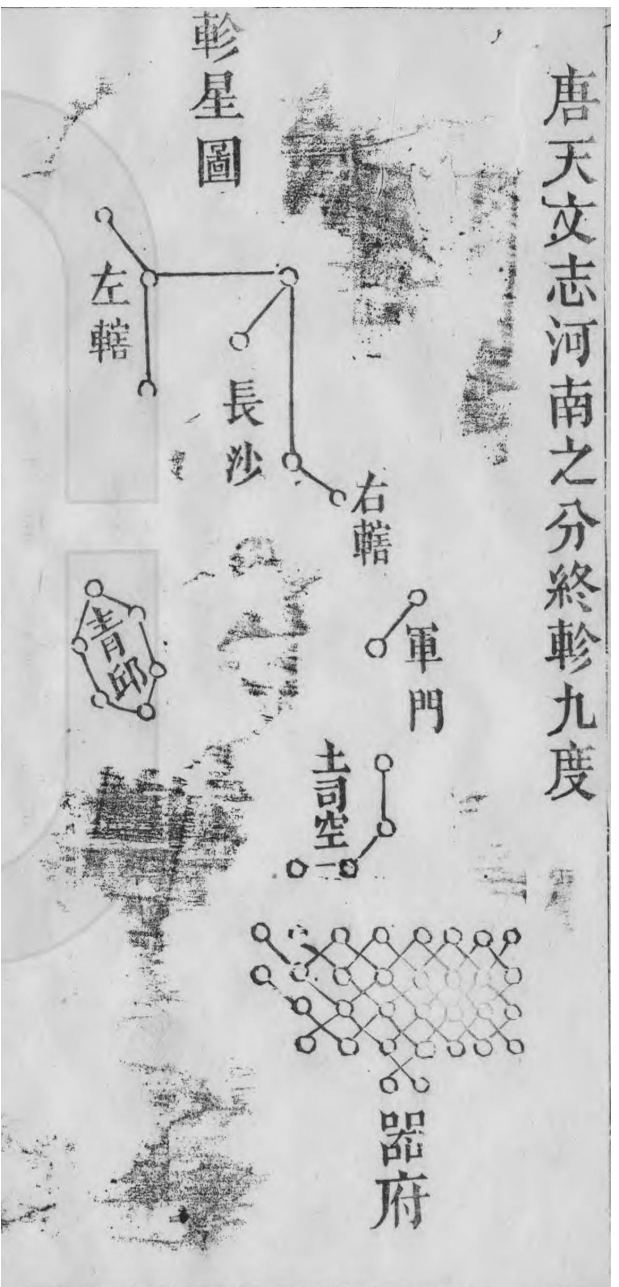 唐天文志河南之分終軫九度
軫星圖
右轄
長沙
左轄
軍門
青邱
土司空
器府